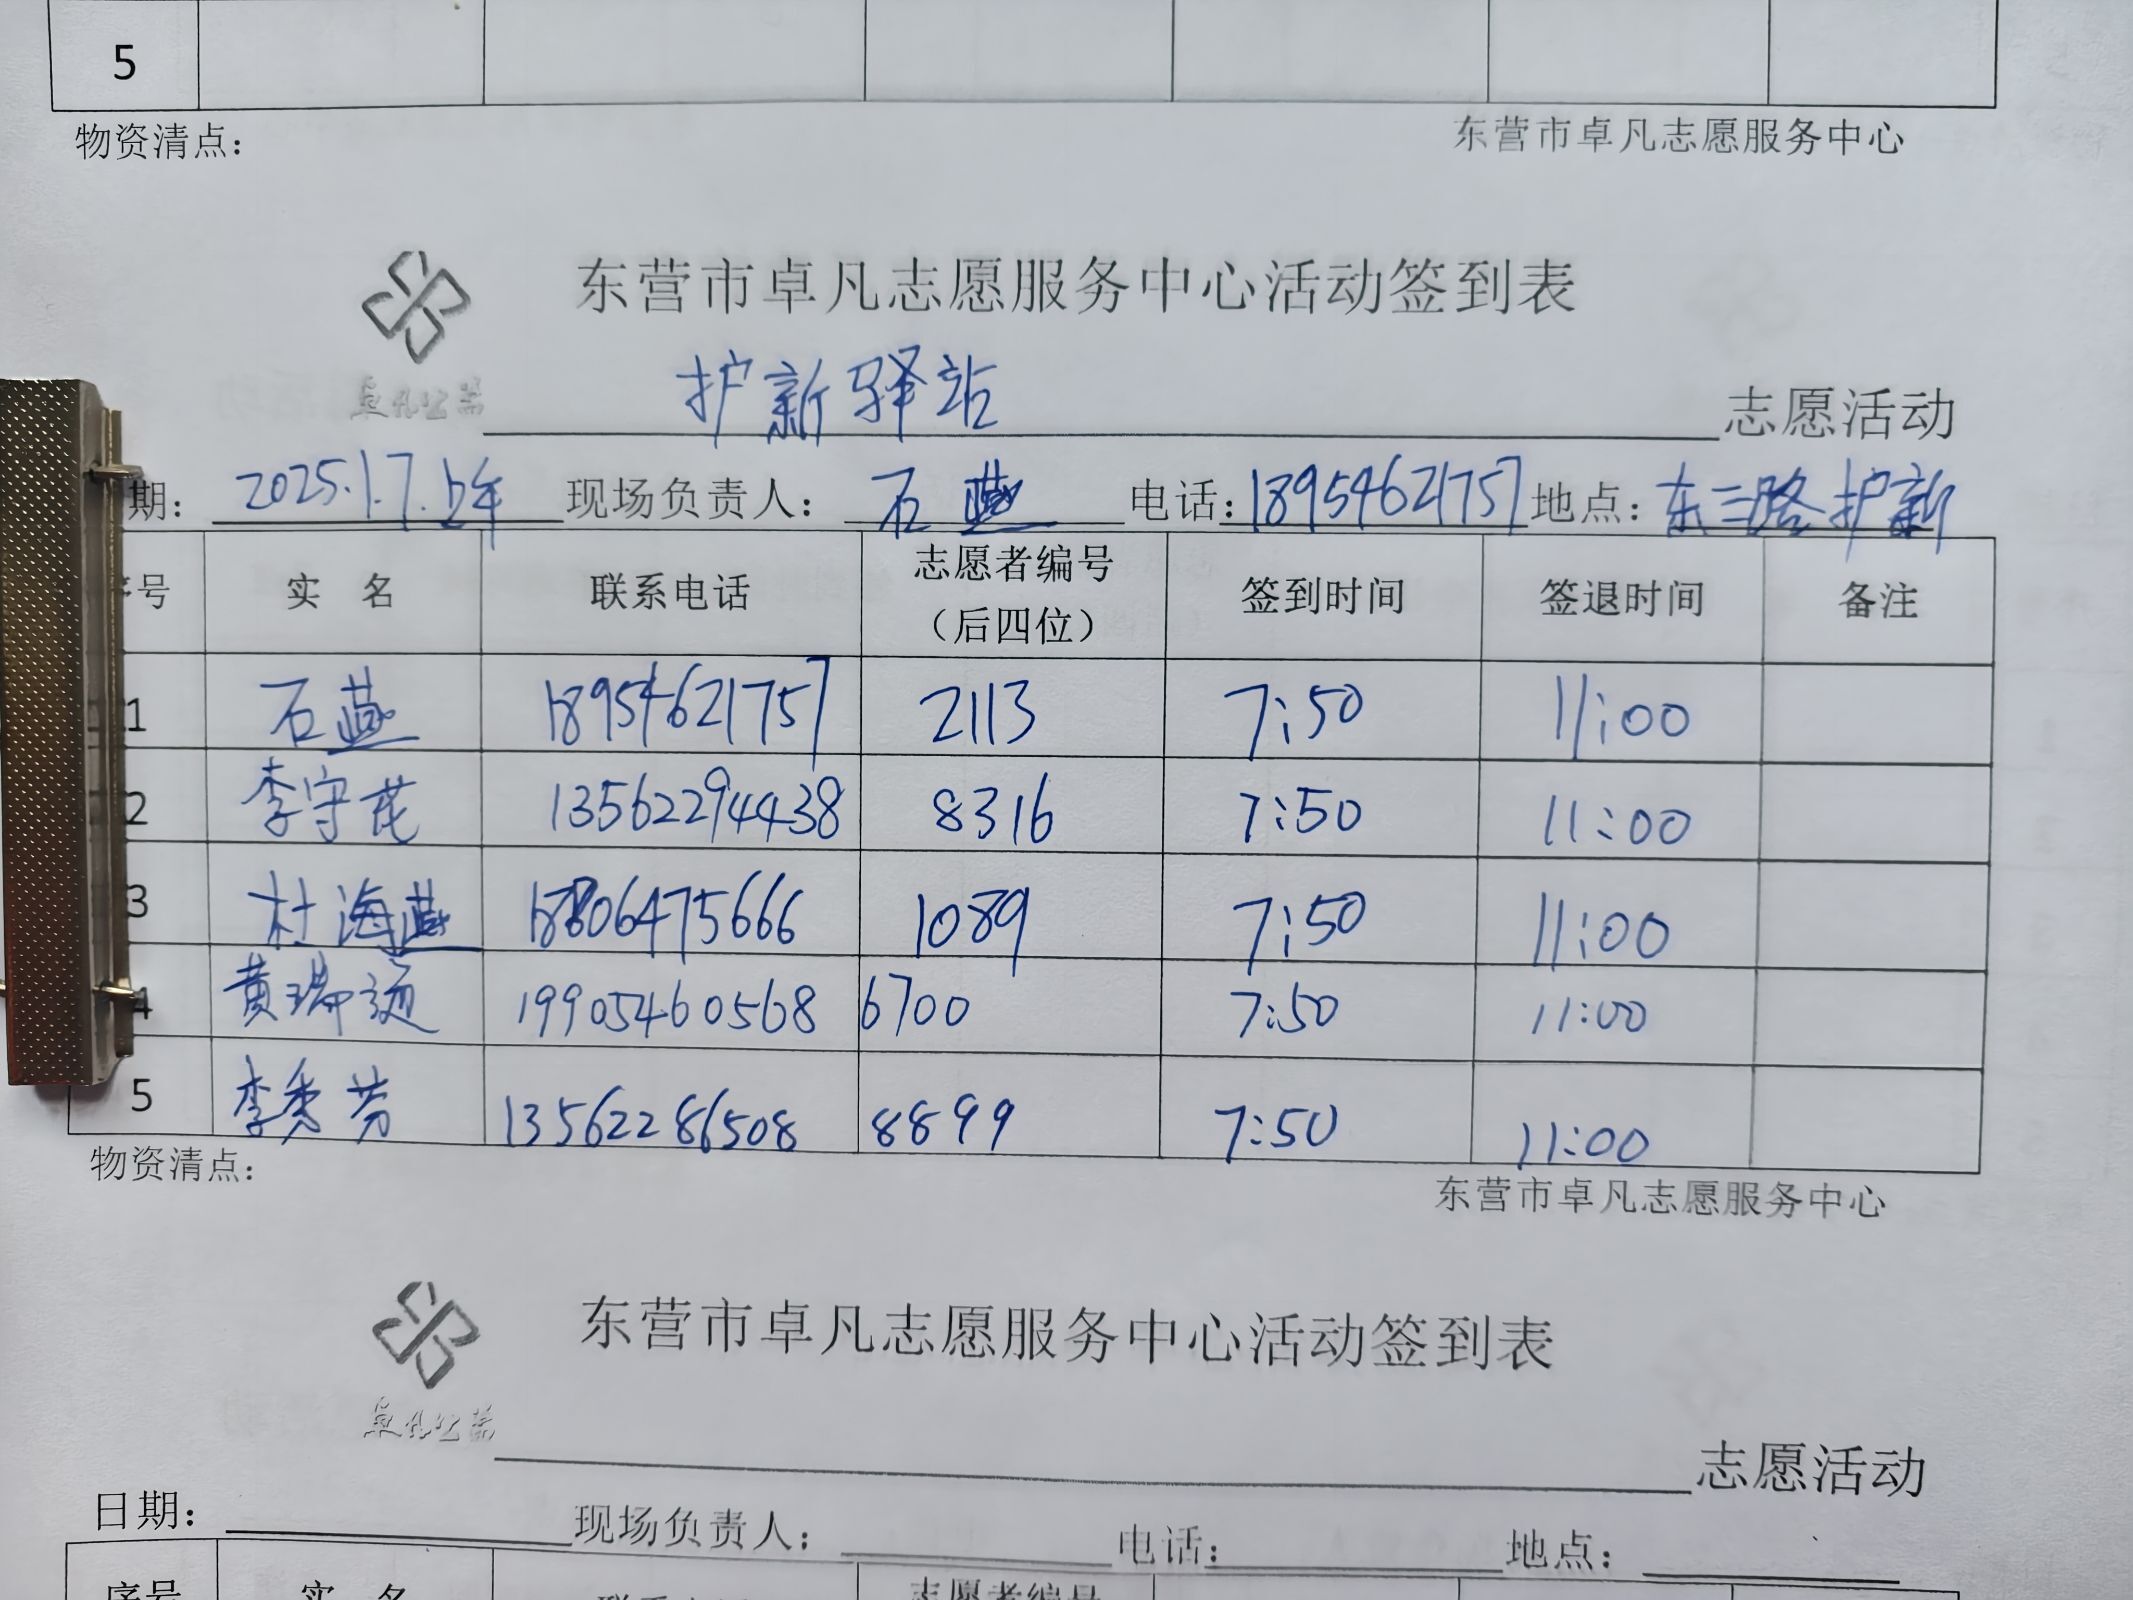 5
物资清点：
东营市卓凡志愿服务中心
东营市卓凡志愿服务中心活动签到表
卓凡公益
护新驿站 志愿活动
期：2025.1.7.上午 现场负责人：石燕 电话：18954621757 地点：东三路护新
号 实 名 联系电话 志愿者编号（后四位） 签到时间 签退时间 备注
1 石燕 18954621757 2113 7:50 11:00
2 李守花 13562294438 8316 7:50 11:00
3 杜海燕 18806475666 1089 7:50 11:00
4 黄瑞 19905460568 6700 7:50 11:00
5 李秀芳 13562286508 8899 7:50 11:00
物资清点：
东营市卓凡志愿服务中心
东营市卓凡志愿服务中心活动签到表
卓凡公益
志愿活动
日期： 现场负责人： 电话： 地点：
序号 实 名 联系电话 志愿者编号